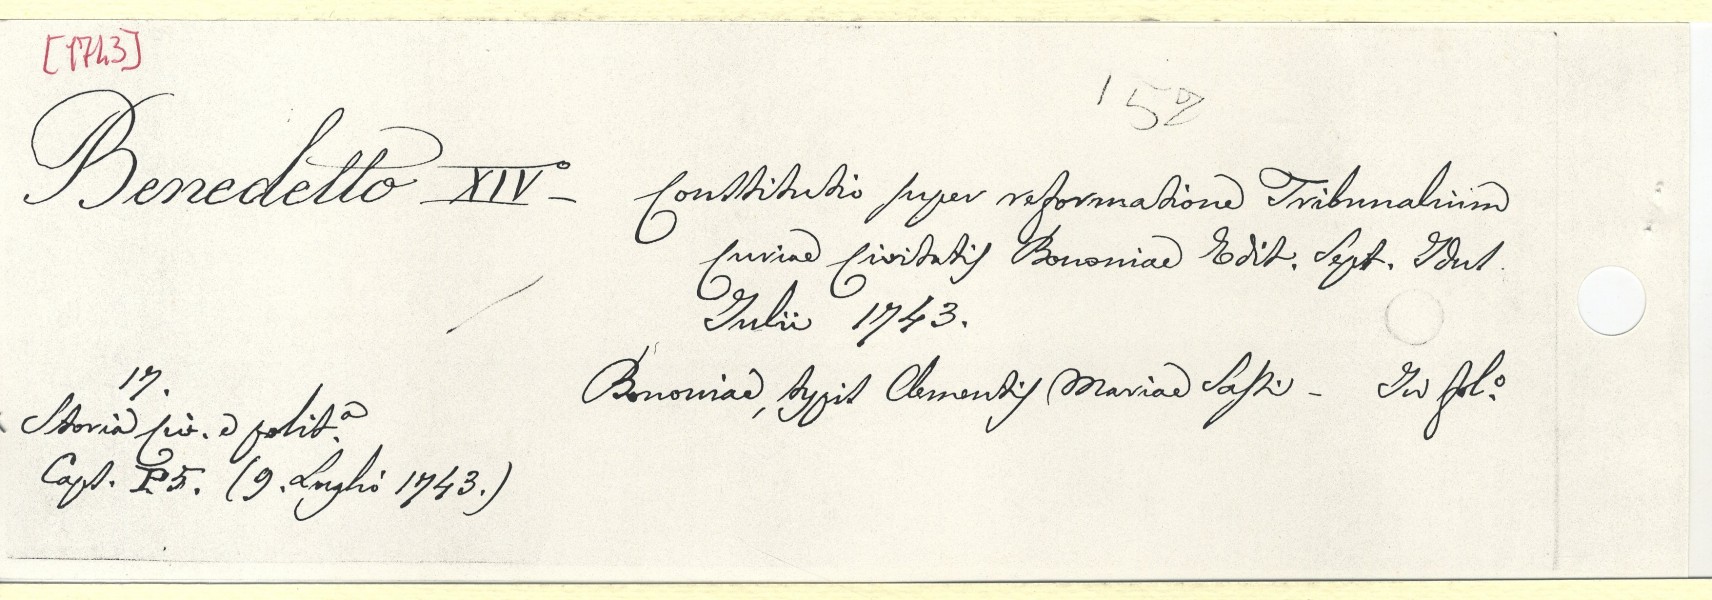 [1743]
152
Benedetto XIV.° - Constitutio super reformatione Tribunalium
Curiae Civitatis Bononiae Edit. Sept. Idus
Julii 1743.
Bononiae, typis Clementis Mariae Sassi - In fol.°
17.
Storia civ. e polit.ª
Cart. P5. (9. Luglio 1743.)